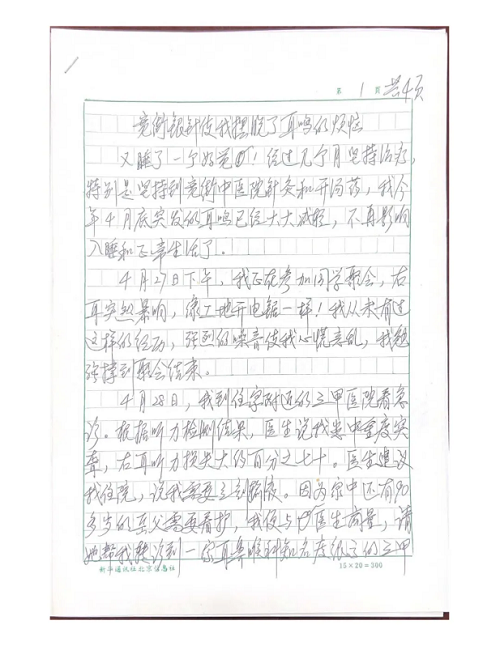 第 1 页 共4页
竟衡银针使我摆脱了耳鸣的烦恼
又睡了一个好觉！经过几个月坚持治疗，
特别是坚持到竟衡中医院针灸和开汤药，我今
年4月底突发的耳鸣已经大大减轻，不再影响
入睡和正常生活了。
4月27日下午，我正在参加同学聚会，右
耳突然轰响，像工地开电锯一样！我从未有过
这样的经历，强烈的噪音使我心慌意乱，我勉
强撑到聚会结束。
4月28日，我到住家附近的三甲医院看急
诊。根据听力检测结果，医生说我患中重度突
聋，右耳听力损失大约百分之七十。医生建议
我住院，说我需要立刻输液。因为家中还有90
多岁的岳父需要看护，我便与医生商量，请
她帮我转诊到一家耳鼻喉科知名度很高的三甲
新华通讯社北京信息社
15×20=300